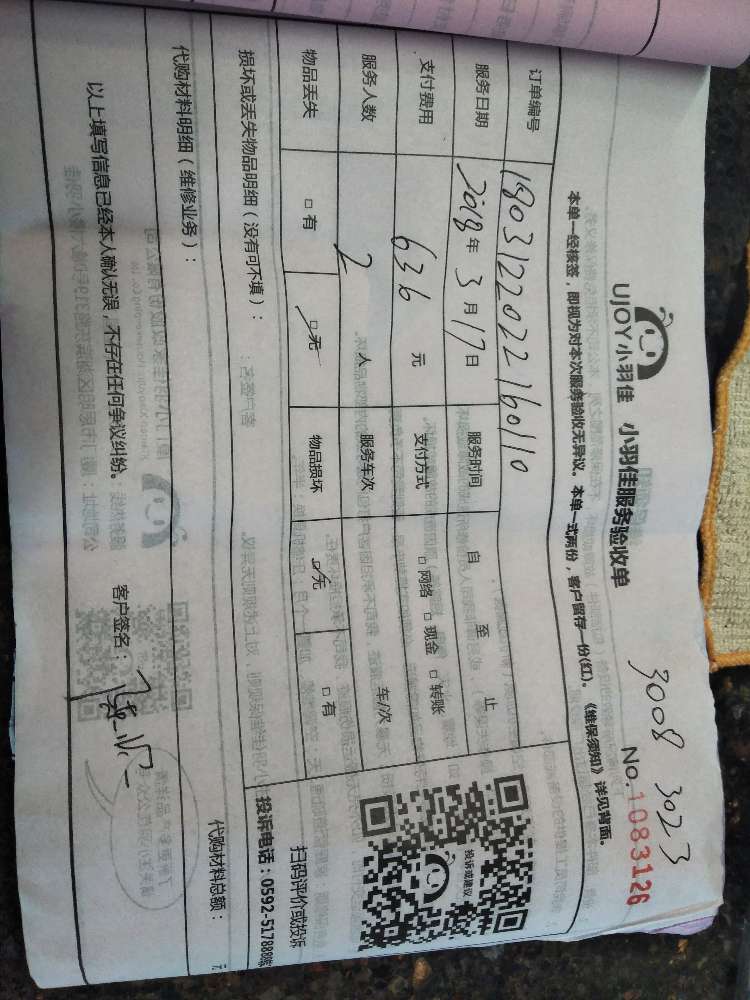 3008 3023
UJOY小羽佳 小羽佳服务验收单 No.1083126
本单一经核签，即视为对本次服务验收无异议。本单一式两份，客户留存一份(红)。《维保须知》详见背面。
订单编号 1803122022160110
服务日期 2018年3月17日 服务时间 自 至 止
支付费用 636 元 支付方式 □网络 □现金 □转账
服务人数 2 人 服务车次 车/次
物品丢失 □有 □无 物品损坏 □无 □有
投诉或建议
扫码评价或投诉
损坏或丢失物品明细（没有可不填）：
投诉电话：0592-517888
代购材料明细（维修业务）： 代购材料总额：
以上填写信息已经本人确认无误，不存在任何争议纠纷。 客户签名：